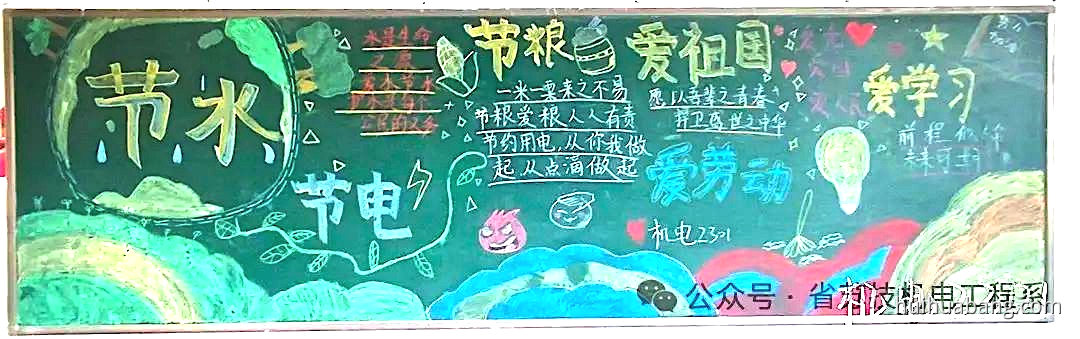 节水
水是生命
之源
爱水节水
护水是每个
公民的义务
节电
节粮
一米一粟来之不易
节粮爱粮人人有责
节约用电,从你我做
起从点滴做起
爱祖国
愿以吾辈之青春
捍卫盛世之中华
爱劳动
机电2301
爱学习
前程似锦
未来可期
公众号·省科技机电工程系